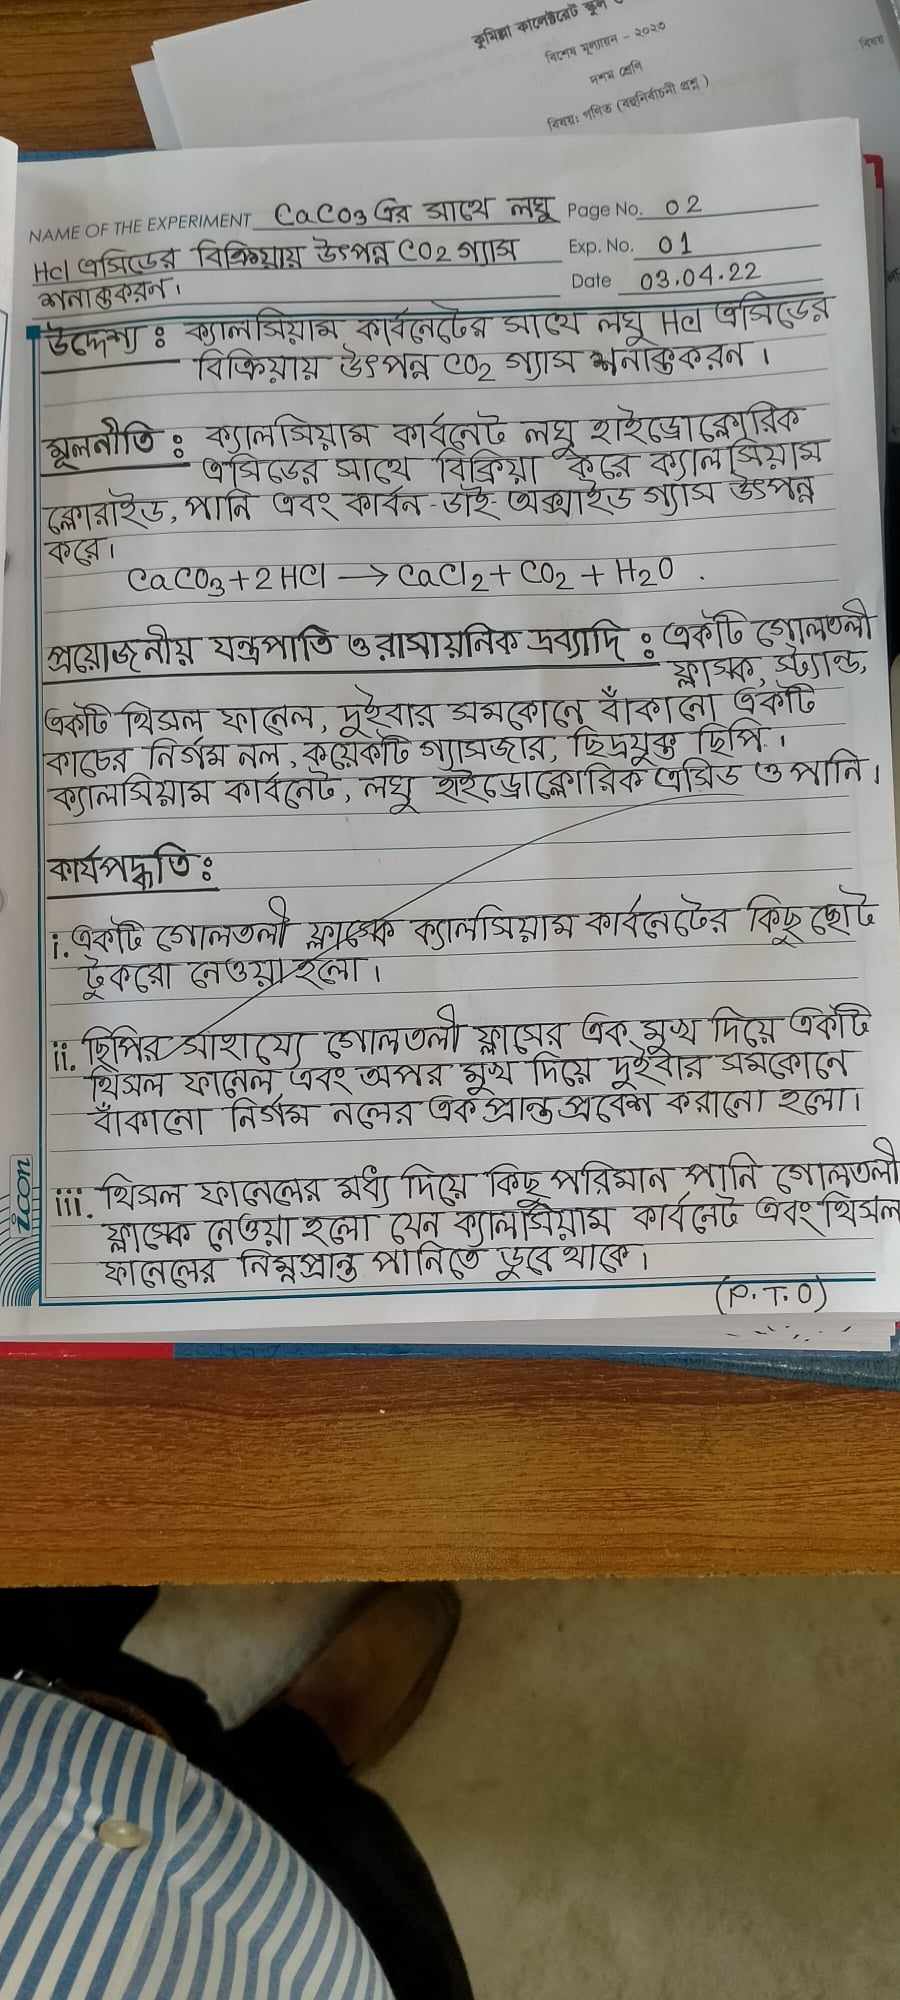 কুমিল্লা কালেক্টরেট স্কুল
বিশেষ মূল্যায়ন - ২০২৩
দশম শ্রেণি
বিষয়: গণিত (বহুনির্বাচনী প্রশ্ন)
বিষয়
NAME OF THE EXPERIMENT CaCO3 এর সাথে লঘু
Page No. 02
HCl এসিডের বিক্রিয়ায় উৎপন্ন CO2 গ্যাস
Exp. No. 01
শনাক্তকরন।
Date 03.04.22
উদ্দেশ্য : ক্যালসিয়াম কার্বনেটের সাথে লঘু HCl এসিডের
বিক্রিয়ায় উৎপন্ন CO2 গ্যাস শনাক্তকরন।
মূলনীতি : ক্যালসিয়াম কার্বনেট লঘু হাইড্রোক্লোরিক
এসিডের সাথে বিক্রিয়া করে ক্যালসিয়াম
ক্লোরাইড, পানি এবং কার্বন-ডাই-অক্সাইড গ্যাস উৎপন্ন
করে।
CaCO3 + 2HCl → CaCl2 + CO2 + H2O .
প্রয়োজনীয় যন্ত্রপাতি ও রাসায়নিক দ্রব্যাদি : একটি গোলতলী
ফ্লাস্ক, স্ট্যান্ড,
একটি থিসল ফানেল, দুইবার সমকোনে বাঁকানো একটি
কাচের নির্গম নল, কয়েকটি গ্যাসজার, ছিদ্রযুক্ত ছিপি।
ক্যালসিয়াম কার্বনেট, লঘু হাইড্রোক্লোরিক এসিড ও পানি।
কার্যপদ্ধতি :
i. একটি গোলতলী ফ্লাস্কে ক্যালসিয়াম কার্বনেটের কিছু ছোট
টুকরো নেওয়া হলো।
ii. ছিপির সাহায্যে গোলতলী ফ্লাসের এক মুখ দিয়ে একটি
থিসল ফানেল এবং অপর মুখ দিয়ে দুইবার সমকোনে
বাঁকানো নির্গম নলের এক প্রান্ত প্রবেশ করানো হলো।
iii. থিসল ফানেলের মধ্য দিয়ে কিছু পরিমান পানি গোলতলী
ফ্লাস্কে নেওয়া হলো যেন ক্যালসিয়াম কার্বনেট এবং থিসল
ফানেলের নিম্নপ্রান্ত পানিতে ডুবে থাকে।
(P.T.O)
icon